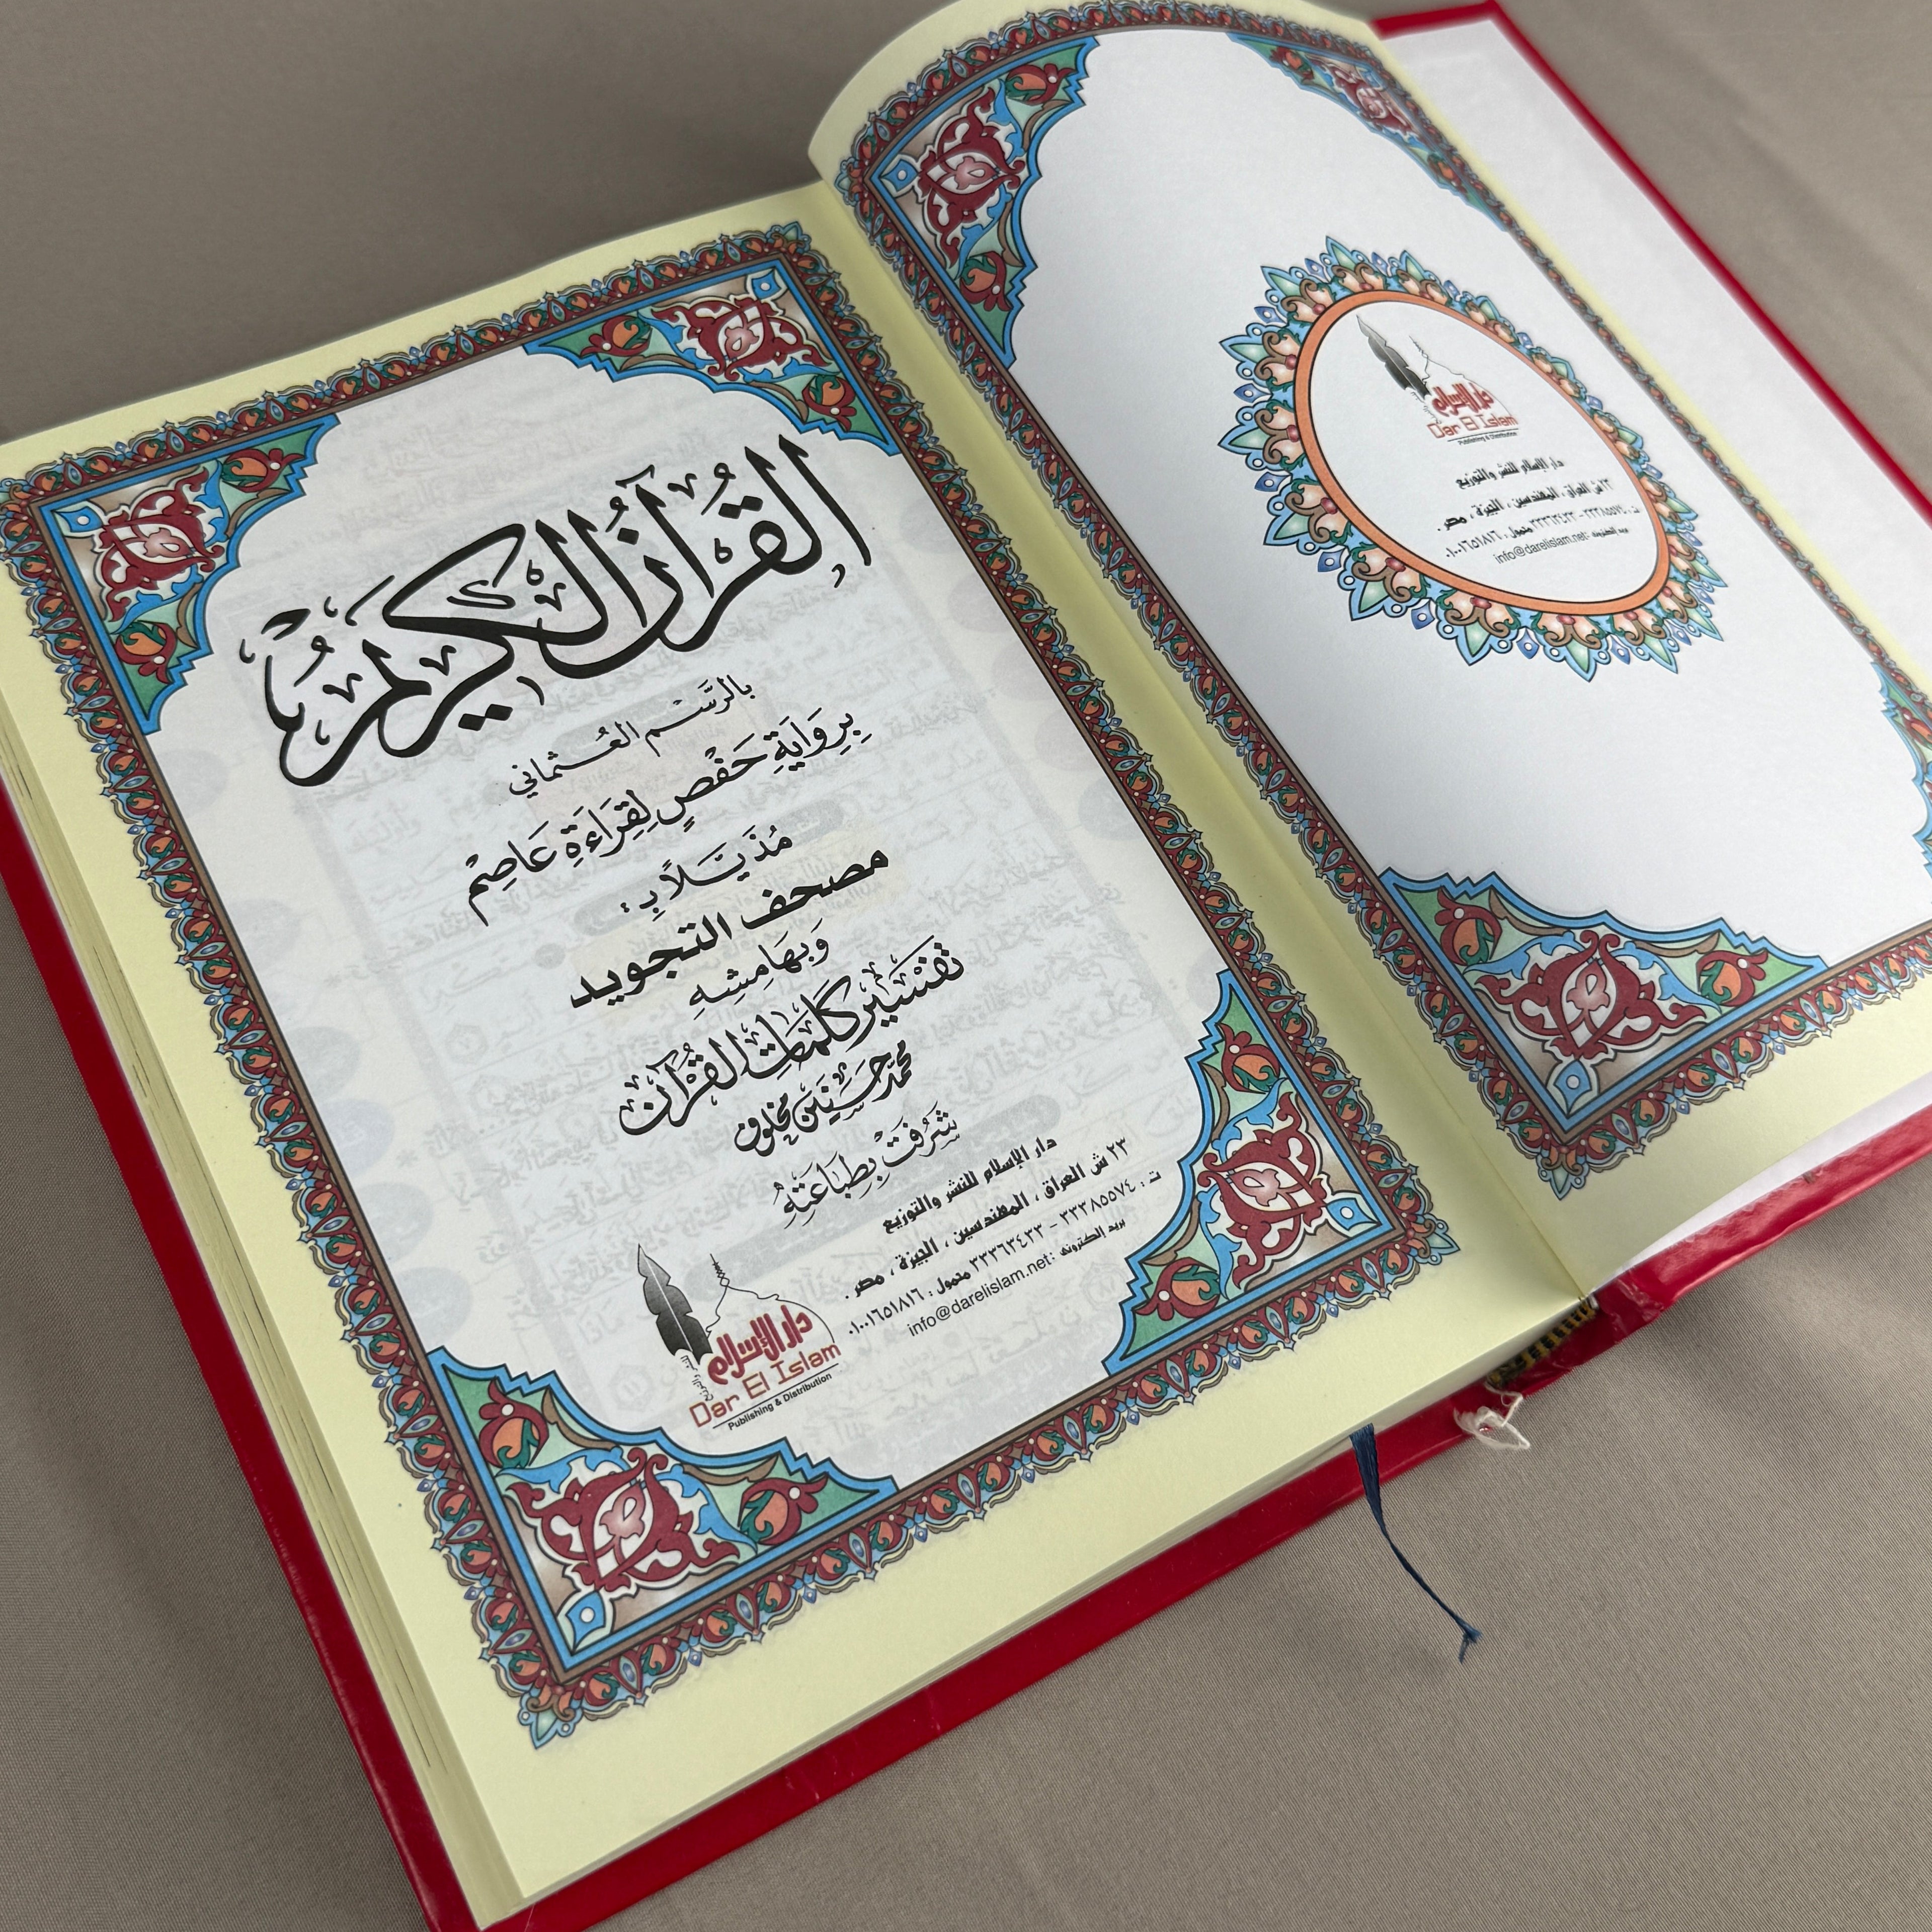 القُرآنُ الكَرِيمُ
بالرَّسْمِ العُثماني
بِرِوَايَةِ حَفْصٍ لِقِرَاءَةِ عَاصِمْ
مُذَيَّلاً بِ:
مصحف التجويد
وَبهَامِشِهِ
تَفْسِيرُ كَلِمَاتِ القُرْآن
محمَّد حَسَنَين مخلوف
شَرُفَتْ بِطِبَاعَتِهُ
دار الإسلام للنشر والتوزيع
٢٣ ش العراق ، المهندسين ، الجيزة ، مصر .
ت : ٣٣٣٨٥٥٧٤ - ٣٣٣٦٣٤٣٣ متمول : ٠١٠٠١٦٥١٨١٦
بريد إلكترونى : info@darelislam.net
دار الإسلام
للنشر والتوزيع
Dar El Islam
Publishing & Distribution
دار الإسلام
Dar El Islam
Publishing & Distribution
دار الإسلام للنشر والتوزيع
٢٣ ش العراق ، المهندسين ، الجيزة ، مصر .
بريد إلكترونى : info@darelislam.net